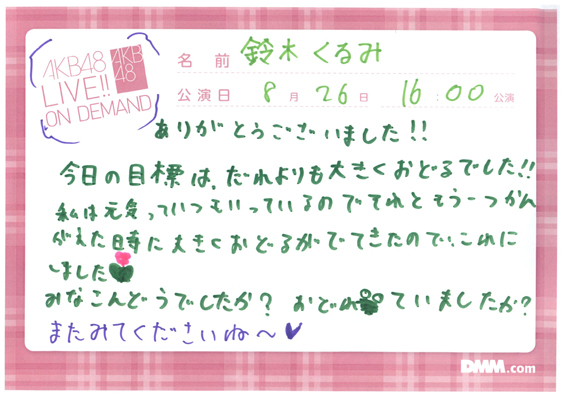 AKB48
LIVE!!
ON DEMAND
AKB
48
名前 鈴木くるみ
公演日 8月26日 16:00公演
ありがとうございました!!
今日の目標は、だれよりも大きくおどるでした!!
私は元気っていつもいっているのでそれともう一つかん
がえた時に大きくおどるがでてきたので、これに
しました
みなこんどうでしたか? おどれていましたか?
またみてくださいね〜
DMM.com